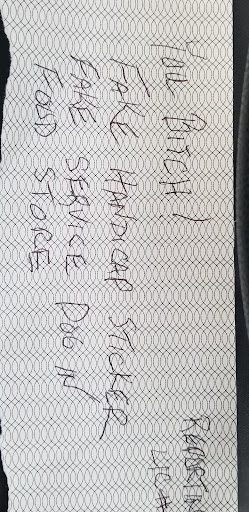 You BITCH!
REPORTIN
LIC #
FAKE HANDICAP STICKER
FAKE SERVICE DOG IN
FOOD STORE